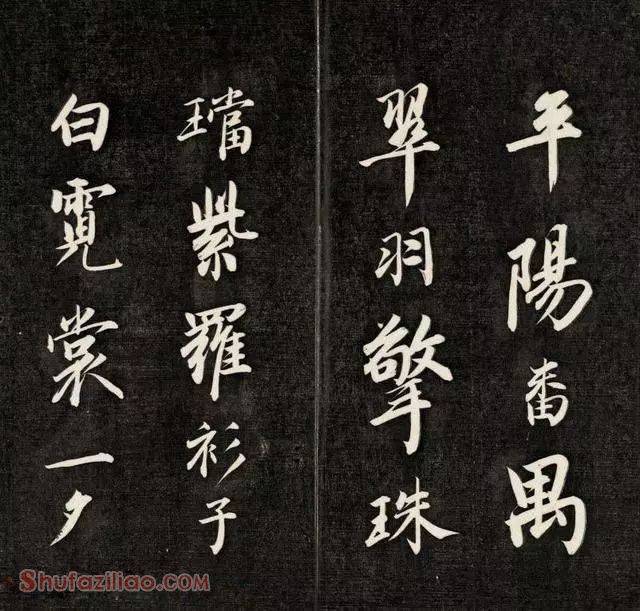 平陽番禺
翠羽擎珠
璫紫羅衫子
白霓裳一夕
Shufaziliao.COM